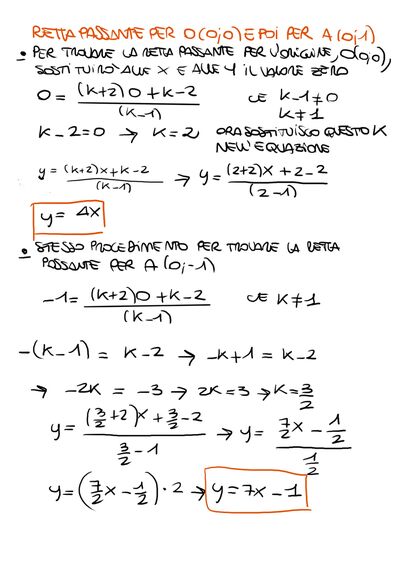 RETTA PASSANTE PER O(0;0) E POI PER A(0;1)
• PER TROVARE LA RETTA PASSANTE PER L'ORIGINE, O(0;0),
SOSTITUIRO' ALLE X E ALLE Y IL VALORE ZERO
0 = (K+2)0+K-2 / (K-1) CE K-1≠0
K≠1
K-2=0 → K=2 ORA SOSTITUISCO QUESTO K
NELL'EQUAZIONE
y = (K+2)X+K-2 / (K-1) → y = (2+2)X+2-2 / (2-1)
y = 4X
• STESSO PROCEDIMENTO PER TROVARE LA RETTA
PASSANTE PER A(0;-1)
-1 = (K+2)0+K-2 / (K-1) CE K≠1
-(K-1) = K-2 → -K+1 = K-2
→ -2K = -3 → 2K=3 → K=3/2
y = (3/2+2)X+3/2-2 / 3/2-1 → y = 7/2X-1/2 / 1/2
y = (7/2X-1/2)·2 → y=7X-1